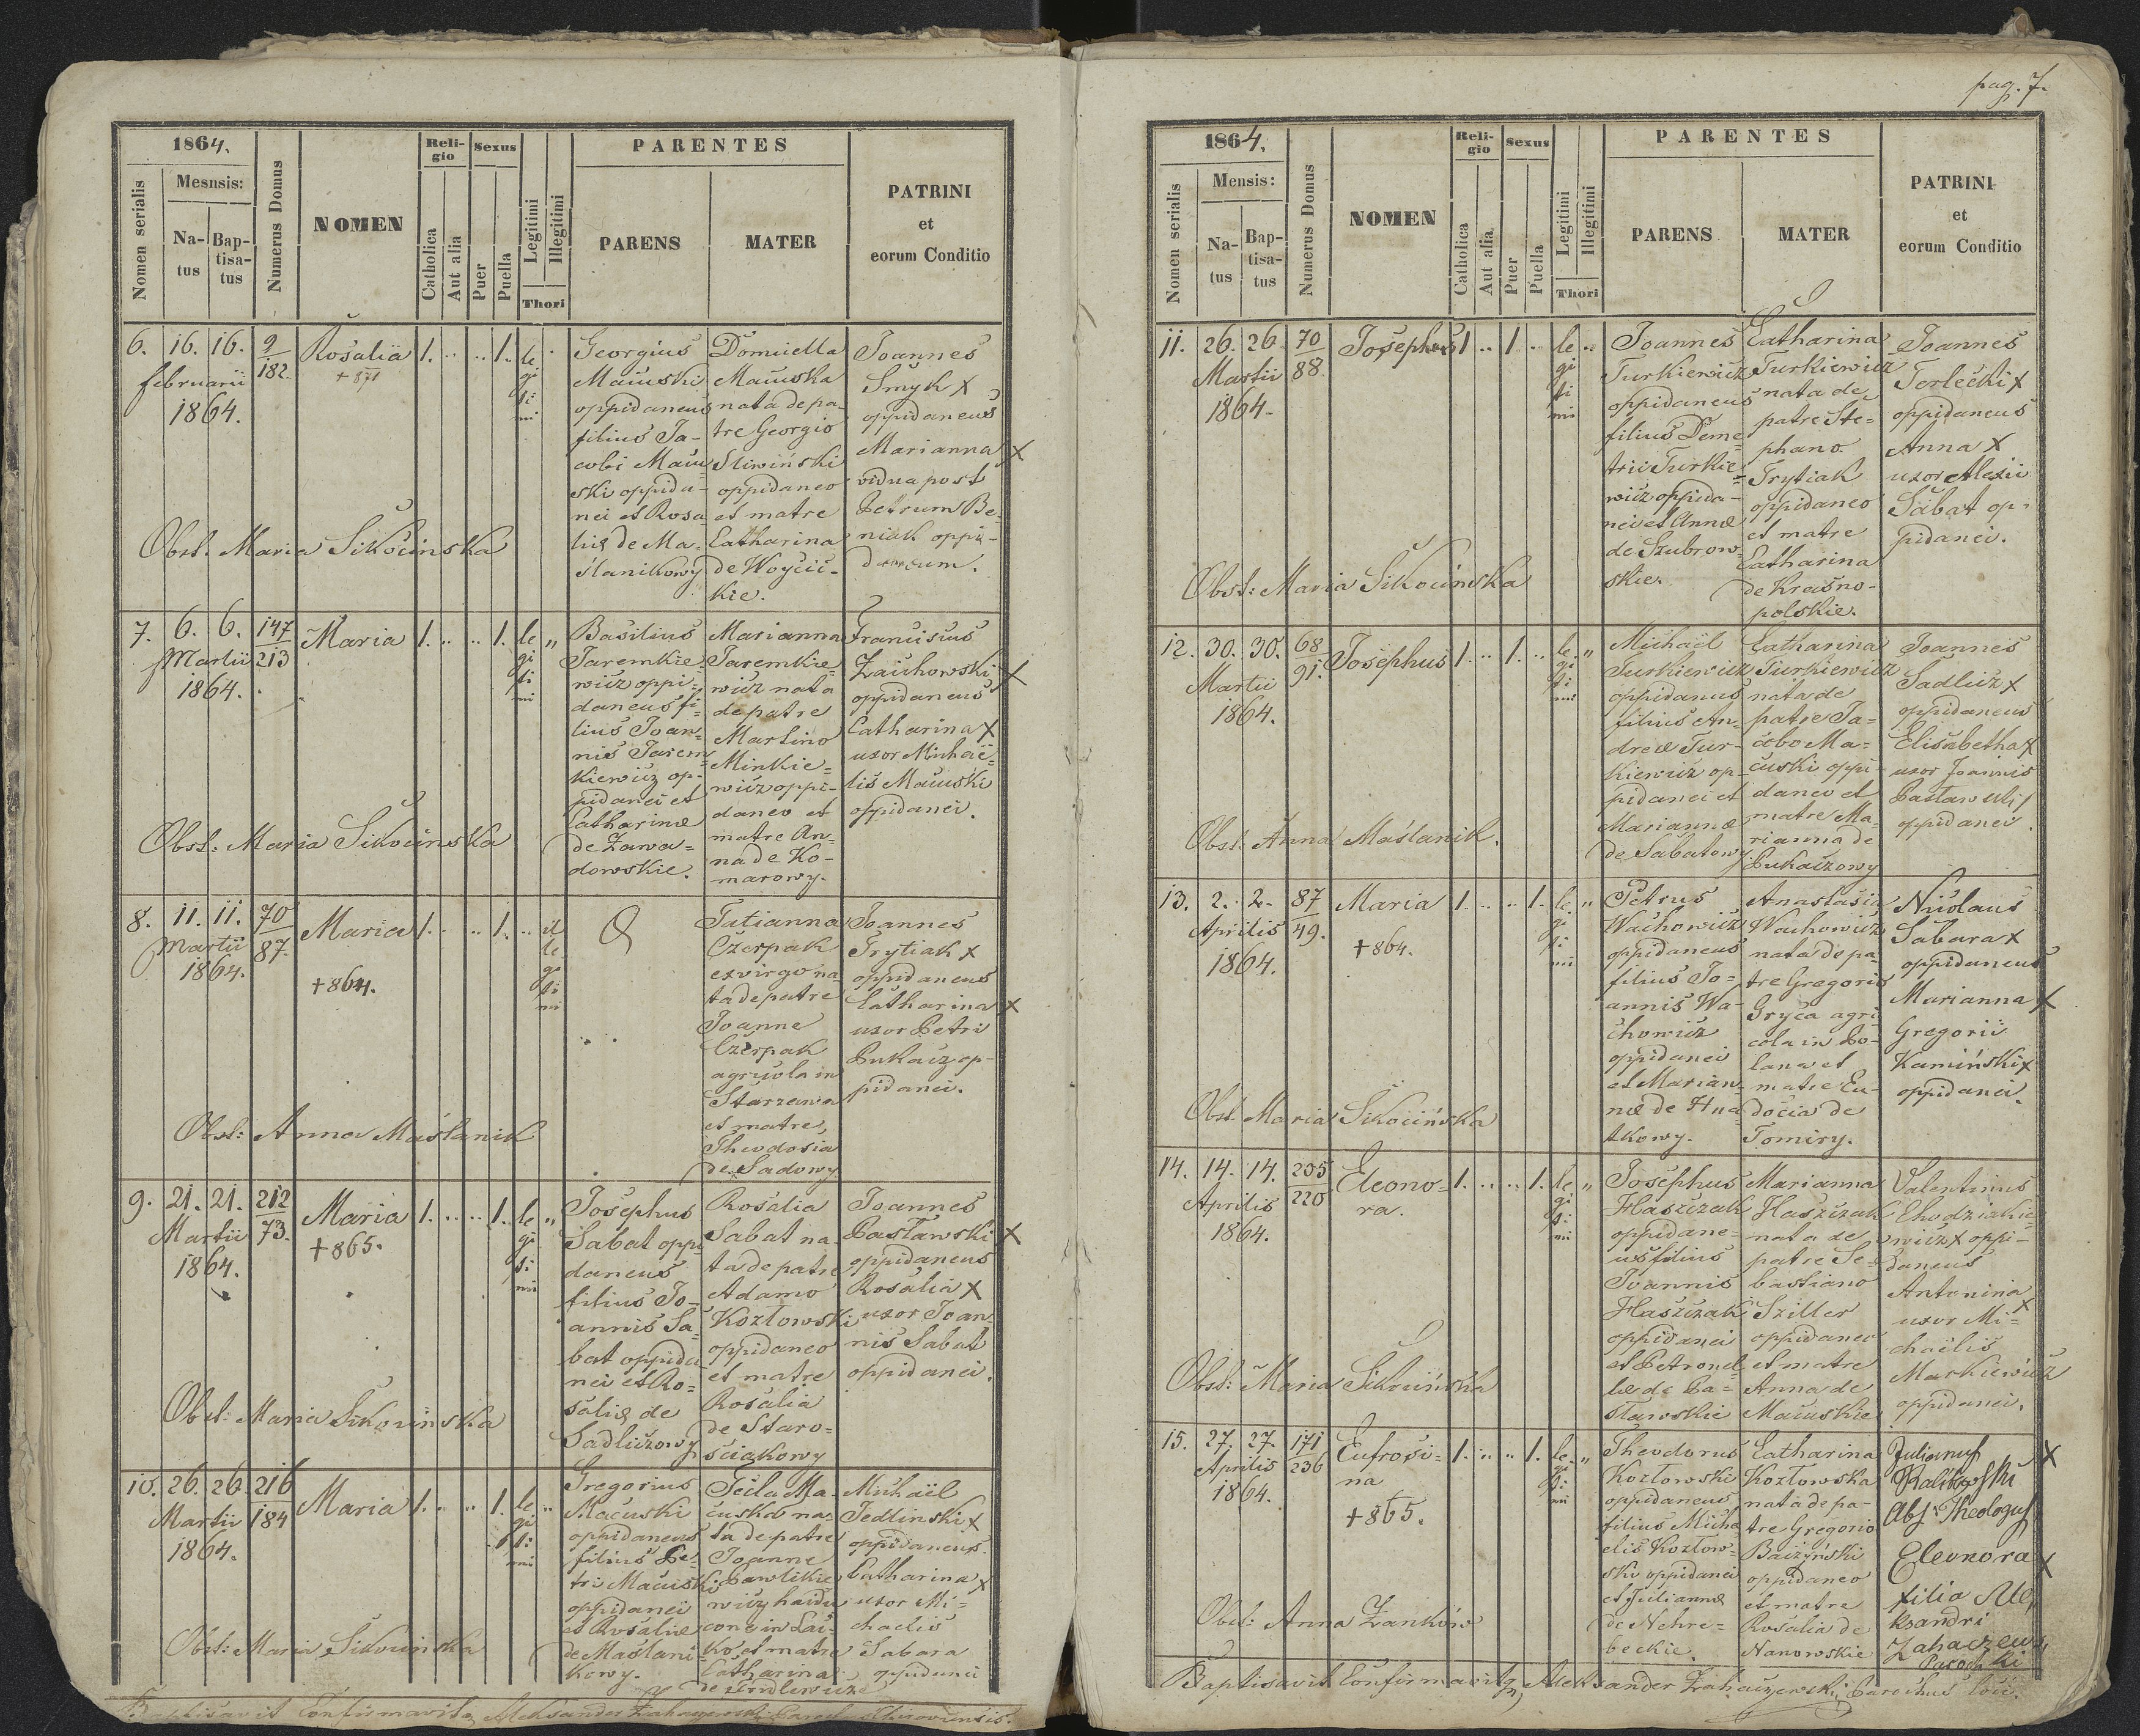 pag. 7.
1864.
Mesnsis:
Nomen serialis
Na-
tus
Bap-
tisa-
tus
Numerus Domus
NOMEN
Reli-
gio
Catholica
Aut alia
Sexus
Puer
Puella
Legitimi
Illegitimi
Thori
PARENTES
PARENS
MATER
PATRINI
et
eorum Conditio
6. 16. 16. 9
februarii 182.
1864.
Rosalia
+ 871
1. .. .. 1.
le
gi
ti
mi
Georgius
Maćuski
oppidaneus
filius Ja-
cobi Maću
ski oppida-
nei et Rosa
liæ de Ma-
ślanikowy
Domicella
Maćuska
nata de pa-
tre Georgio
Sliwiński
oppidaneo
et matre
Catharina
de Woycić-
kie.
Joannes
Smyk x
oppidaneus
Marianna x
vidua post
Petrum Be-
niak oppi-
daneum.
Obst. Maria Sikocinska
7. 6. 6. 147
Martii 213
1864.
Maria
1. .. .. 1.
le „
gi
ti
mi
Basilius
Jaremkie-
wicz oppi-
daneus fi-
lius Joan-
nis Jarem
kiewicz op-
pidanei et
Catharinæ
de Zawa-
dowskie.
Marianna
Jaremkie-
wicz nata
de patre
Martino
Minkie-
wicz oppi-
daneo et
matre An-
na de Ko-
marowy.
Franciscus
Zaichowski x
oppidaneus
Catharina x
uxor Michaë-
lis Maćuski
oppidanei.
Obst. Maria Sikocinska
8. 11. 11. 70
Martii 87.
1864.
Maria
+ 864.
1. .. .. 1. ..
il
le
gi
ti
mi
Tatianna
Czerpak
exvirgo na
ta de patre
Joanne
Czerpak
agricola in
Starzawa
et matre,
Theodosia
de Sadowy
Joannes
Trytiak x
oppidaneus
Catharina x
uxor Petri
Pukacz op-
pidanei.
Obst: Anna Maślanik
9. 21. 21. 212
Martii 73.
1864.
Maria
+ 865.
1. .. .. 1.
le „
gi
ti
mi
Josephus
Sabat oppi
daneus
filius Jo-
annis Sa-
bat oppida
nei et Ro-
saliæ de
Sadliczowy
Rosalia
Sabat na-
ta de patre
Adamo
Kozłowski
oppidaneo
et matre
Rosalia
de Staro-
ściakowy
Joannes
Pasławski x
oppidaneus
Rosalia x
uxor Joan-
nis Sabat
oppidanei.
Obst: Maria Sikocinska
10. 26. 26. 216
Martii 184
1864.
Maria
1. .. .. 1.
le „
gi
ti
mi
Gregorius
Maćuski
oppidaneus
filius Pe-
tri Maćuski
oppidanei
et Rosaliæ
de Maślani-
kowy.
Tecla Ma-
ćuska na-
ta de patre
Joanne
Pawlikie
wicz haidu
cone in Laś-
ko et matre
Catharina
Michaël
Jedlinski x
oppidaneus.
Catharina x
uxor Mi-
chaelis
Sabara
oppidanei
Obst: Maria Sikocinska
Baptisavit Confirmavitq Aleksander Zahajczewski Paroch
1864.
Mensis:
Nomen serialis
Na-
tus
Bap-
tisa-
tus
Numerus Domus
NOMEN
Reli-
gio
Catholica
Aut alia
Sexus
Puer
Puella
Legitimi
Illegitimi
Thori
PARENTES
PARENS
MATER
PATRINI
et
eorum Conditio
11. 26. 26. 70
Martii 88.
1864.
Josephus
1 .. 1 .
le ..
gi
ti
mi
Joannes
Turkiewicz
oppidaneus
filius Deme-
trii Turkie-
wicz oppida-
nei et Annæ
de Szubrow-
skie.
Catharina
Turkiewicz
nata de
patre Ste-
phano
Trytiak
oppidaneo
et matre
Catharina
de Krasno-
polskie.
Joannes
Terlecki x
oppidaneus
Anna x
uxor Alexii
Sabat op-
pidanei.
Obst: Maria Sikocinska
12. 30. 30. 68
Martii 91.
1864.
Josephus
1. .. 1. ..
le „
gi
ti
mi
Michaël
Turkiewicz
oppidaneus
filius An-
dreæ Tur-
kiewicz op-
pidanei et
Mariannæ
de Sabatowy
Catharina
Turkiewicz
nata de
patre Ja-
cobo Ma-
ćuski oppi-
daneo et
matre Ma-
rianna de
Pukaczowy
Joannes
Sadlicz x
oppidaneus
Elisabetha x
uxor Joannis
Pasławski
oppidanei.
Obst: Anna Maślanik.
13. 2. 2. 87
Aprilis 49.
1864.
Maria
+ 864.
1. .. .. 1.
le „
gi
ti
mi
Petrus
Wachowicz
oppidaneus
filius Jo-
annis Wa-
chowicz
oppidanei
et Marian-
næ de Hna
tkowy.
Anastasia
Wachowicz
nata de pa-
tre Gregorio
Gryca agri
cola in Po-
lana et
matre Eu-
docia de
Tomiry.
Nicolaus
Sabara x
oppidaneus
Marianna x
Gregorii
Kamiński x
oppidanei.
Obst. Maria Sikocińska
14. 14. 14. 205
Aprilis 220
1864.
Eleono-
ra.
1. .. .. 1.
le „
gi
ti
mi
Josephus
Haszczak
oppidane-
us filius
Joannis
Haszczak
oppidanei
et Petronel
læ de Pa-
sławskie
Marianna
Haszczak
nata de
patre Se-
bastiano
Sziller
oppidaneo
et matre
Anna de
Maćuskie
Valentinus
Chodziakie-
wicz x oppi-
daneus
Antonina x
uxor Mi-
chaëlis
Markiewicz
oppidanei.
Obst: Maria Sikocińska
15. 27. 27. 171
Aprilis 236
1864.
Eufrosi-
na
+ 865.
1. .. .. 1.
le „
gi
ti
mi
Theodorus
Kozłowski
oppidaneus
filius Micha
elis Kozłow-
ski oppidanei
et Juliannæ
de Nehre-
beckie.
Catharina
Kozłowska
nata de pa-
tre Gregorio
Baczyński
oppidaneo
et matre
Rosalia de
Nanowskie
Julianus x
Abs. Theologus
Eleonora x
filia Ale
ksandri
Zahaczews
Parochi
Obst: Anna Zanków
Baptisavit Confirmavitq Aleksander Zahaiczewski Parochus loci.